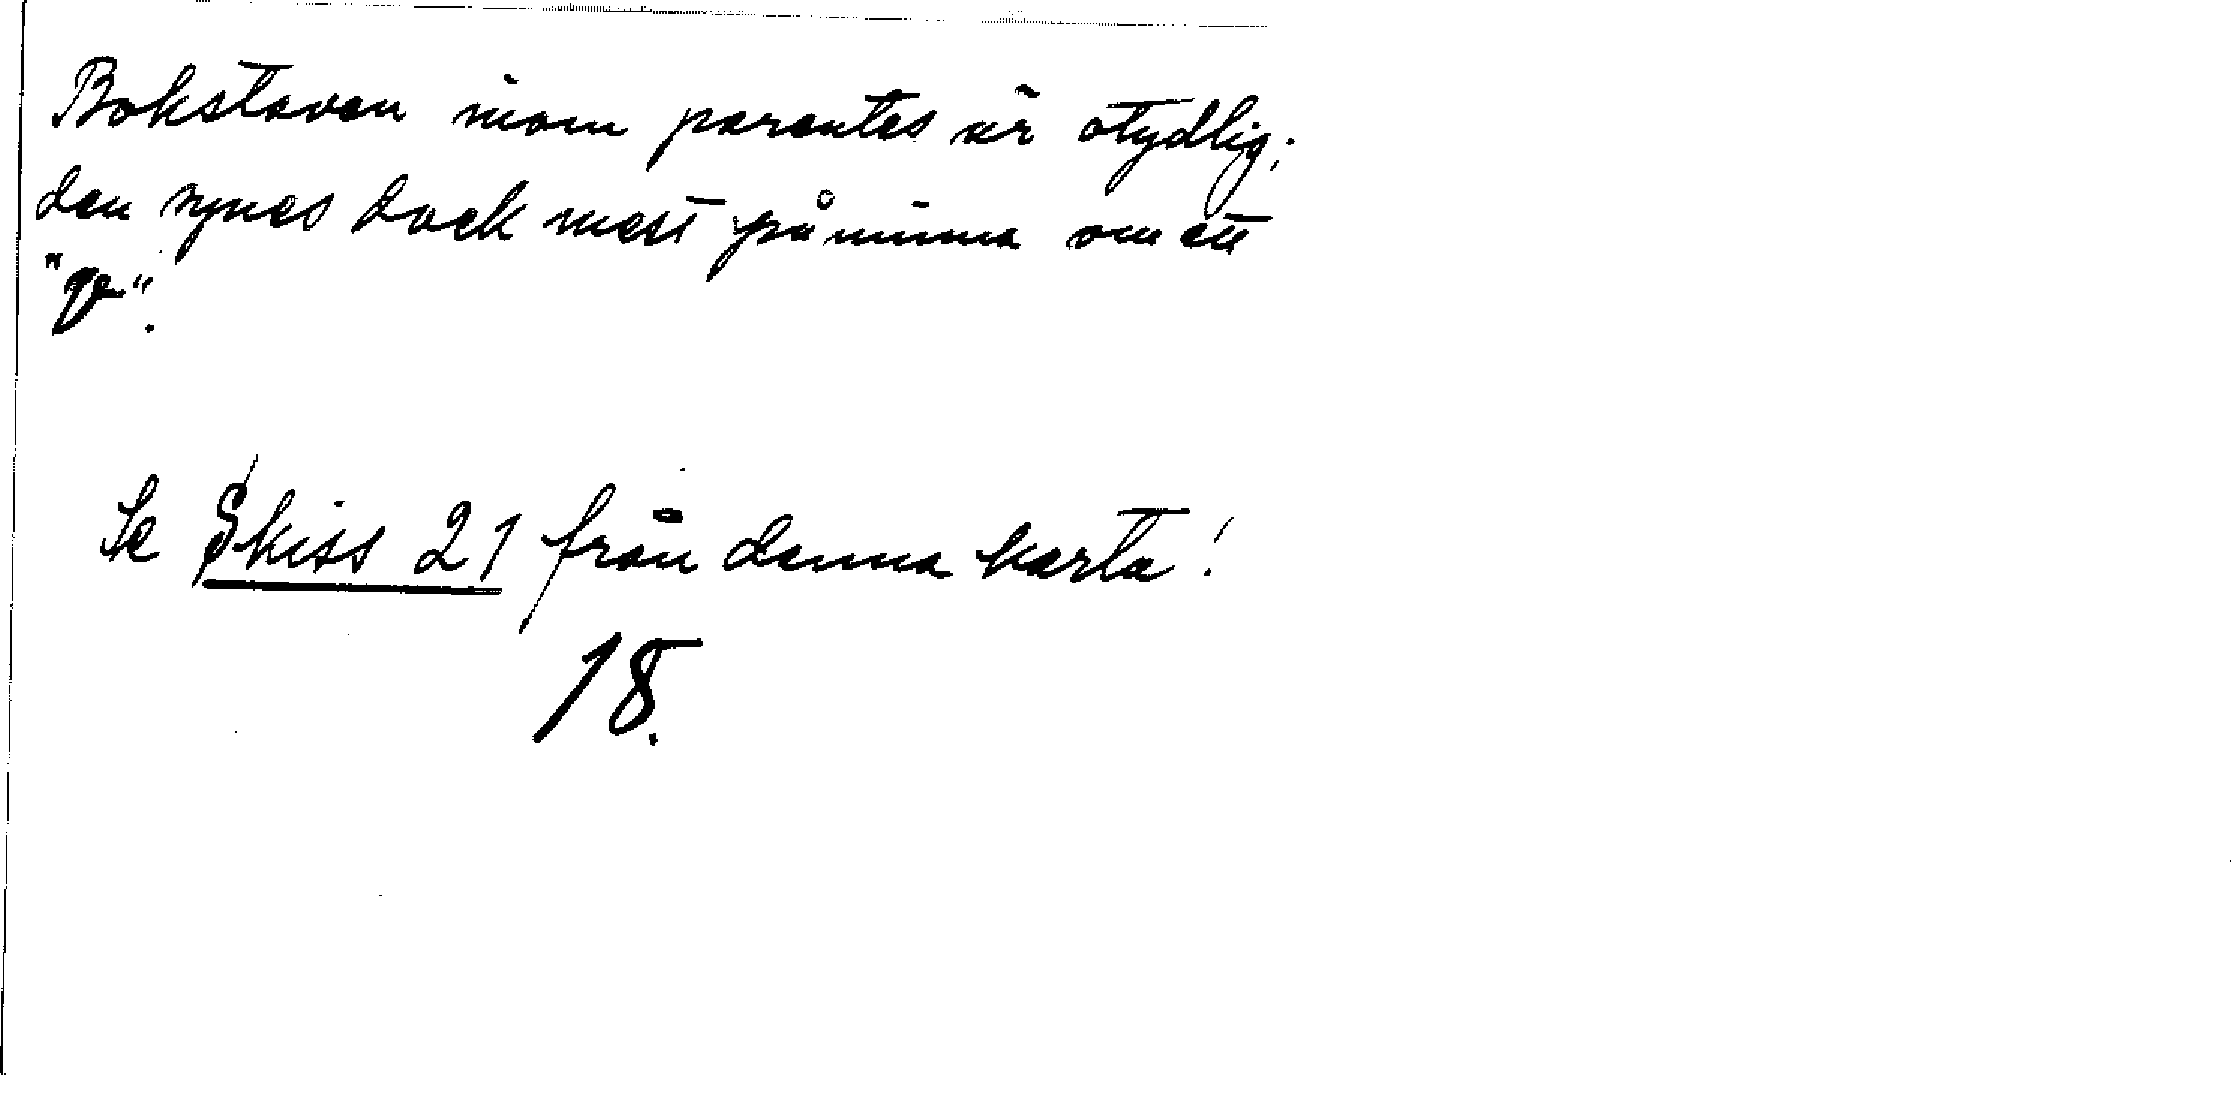 Bokstaven inom parentes är otydlig;
den synes dock mest påminna om ett
"v".
Se Skiss 21 från denna karta!
18.